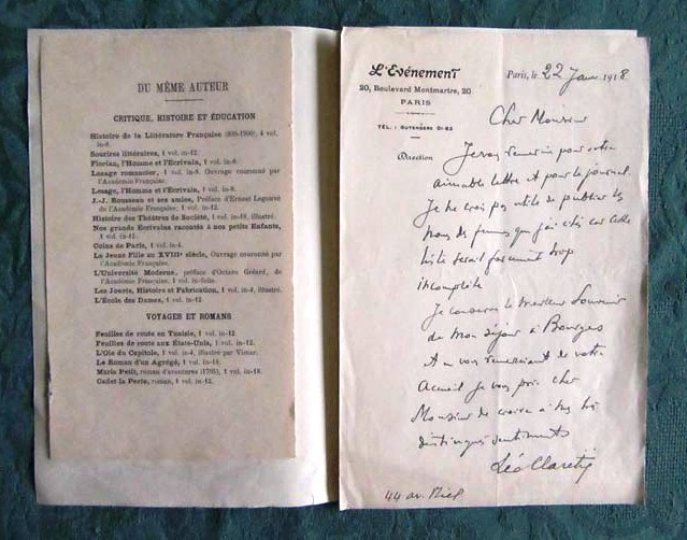 DU MÊME AUTEUR
CRITIQUE, HISTOIRE ET ÉDUCATION
Histoire de la Littérature Française (900-1900), 4 vol.
in-8.
Sourires littéraires, 1 vol. in-12.
Florian, l'Homme et l'Écrivain, 1 vol. in-8.
Lesage romancier, 1 vol. in-8. Ouvrage couronné par
l'Académie Française.
Lesage, l'Homme et l'Écrivain, 1 vol. in-8.
J.-J. Rousseau et ses amies, Préface d'Ernest Legouvé
de l'Académie Française; 1 vol. in-12.
Histoire des Théâtres de Société, 1 vol. in-18, illustré.
Nos grands Écrivains racontés à nos petits Enfants,
1 vol. in-12.
Coins de Paris, 1 vol. in-4.
La Jeune Fille au XVIIIe siècle, Ouvrage couronné par
l'Académie Française.
L'Université Moderne, préface d'Octave Gréard, de
l'Académie Française, 1 vol. in-folio.
Les Jouets, Histoire et Fabrication, 1 vol. in-4, illustré.
L'École des Dames, 1 vol. in-12
VOYAGES ET ROMANS
Feuilles de route en Tunisie, 1 vol. in-12.
Feuilles de route aux États-Unis, 1 vol. in-12.
L'Oie du Capitole, 1 vol. in-4, illustré par Vimar.
Le Roman d'un Agrégé, 1 vol. in-18.
Maris Petit, roman d'aventures (1705), 1 vol. in-18.
Cadet la Perle, roman, 1 vol. in-12.
L'Evénement
20, Boulevard Montmartre, 20
PARIS
TÉL. : GUTENBERG 01-23
Direction
Paris, le 22 Janv 1918
Cher Monsieur
Je vous remercie pour votre
aimable lettre et pour le journal.
Je ne crois pas utile de publier les
noms de femmes que j'ai cités car cette
liste serait forcément trop
incomplète
Je conserve le meilleur souvenir
de mon séjour à Bourges
et en vous remerciant de votre
accueil je vous prie cher
Monsieur de croire à mes très
distingués sentiments
Léo Claretie
44 av. Niel